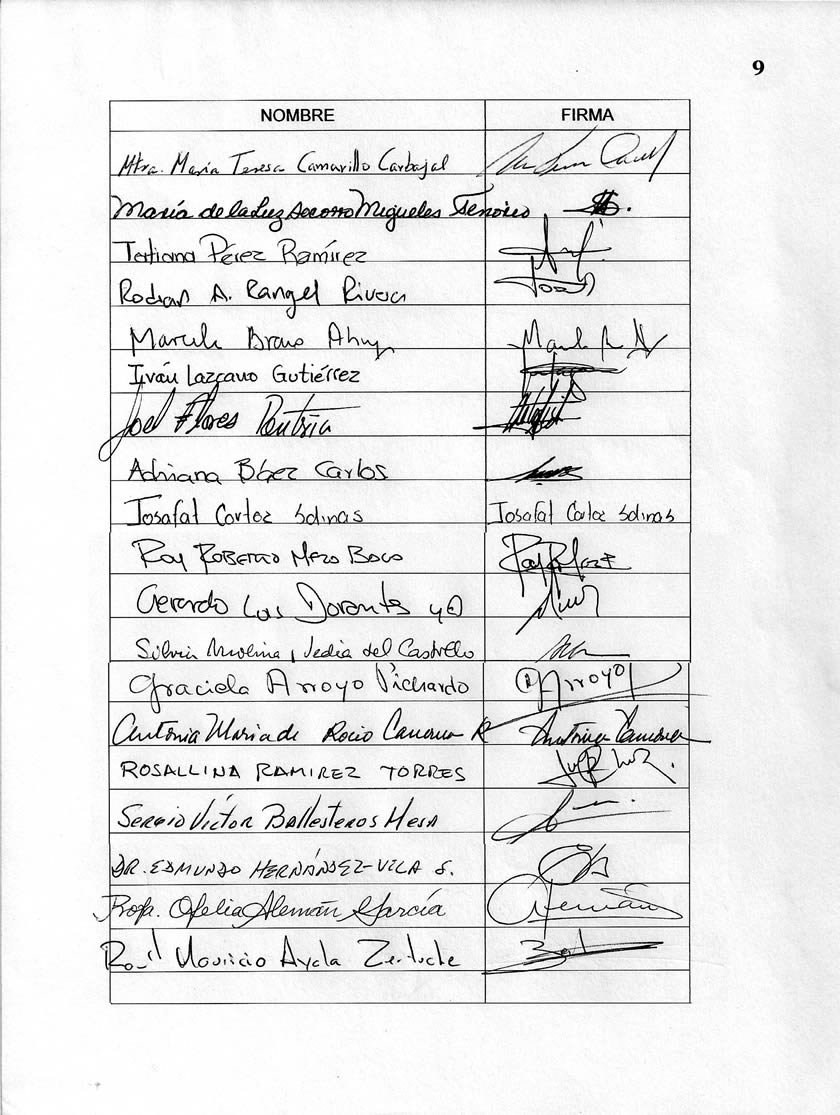 9
NOMBRE FIRMA
Mtra. María Teresa Camarillo Carbajal
María de la Luz Socorro Migueles Tenorio
Tatiana Pérez Ramírez
A. Rangel Rivera
Marcela Bravo
Iván Lazcano Gutiérrez
Joel Flores Rentería
Adriana Báez Carlos
Josafat Cortez Salinas Josafat Cortez Salinas
Roy Roberto Meza Baca
Gerardo Dorantes
Silvia Molina y Vedia del Castillo
Graciela Arroyo Pichardo Arroyo
Antonia Maria de Rocio R Antonia
ROSALLINA RAMIREZ TORRES
Sergio Víctor Ballesteros Mesa
DR. EDMUNDO HERNÁNDEZ-VELA S.
Profa. Ofelia Alemán García Alemán
Raúl Mauricio Ayala Zertuche